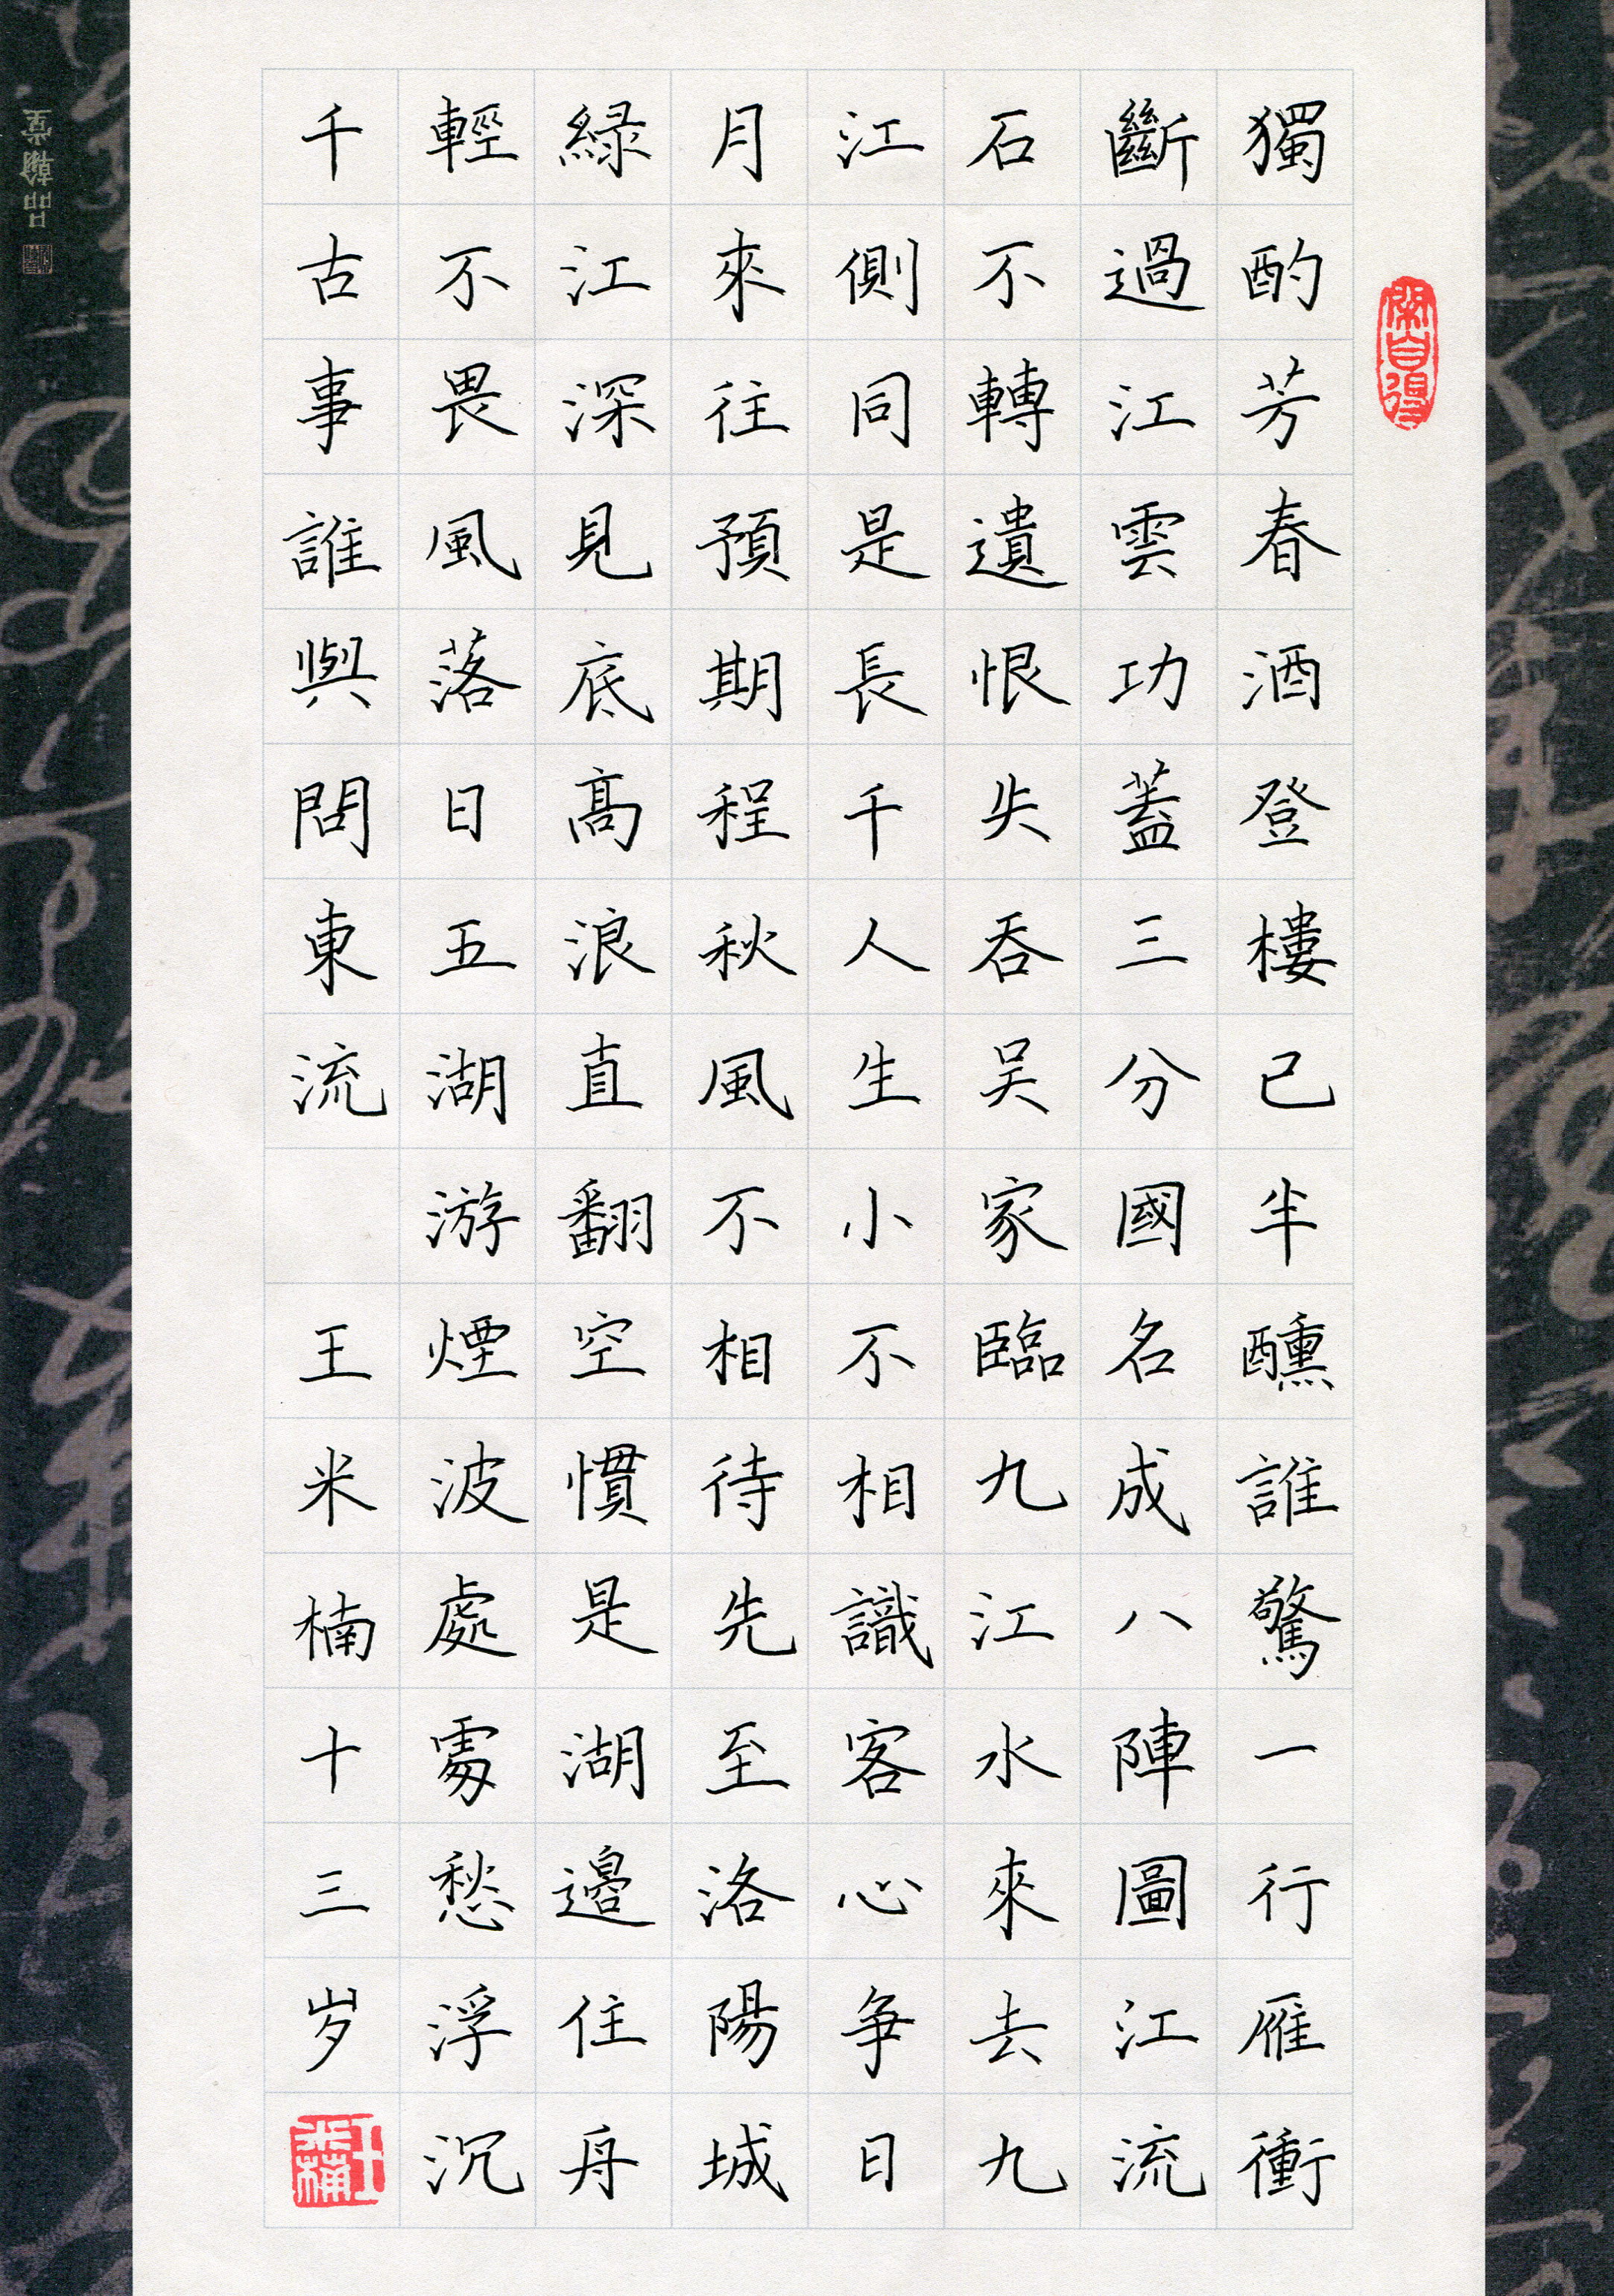 獨酌芳春酒登樓已半醺誰驚一行雁衝
斷過江雲功蓋三分國名成八陣圖江流
石不轉遺恨失吞吴家臨九江水來去九
江側同是長千人生小不相識客心争日
月來往預期程秋風不相待先至洛陽城
緑江深見底髙浪直翻空慣是湖邊住舟
輕不畏風落日五湖游煙波處處愁浮沉
千古事誰與問東流 王米楠十三岁
王米楠
品翰堂